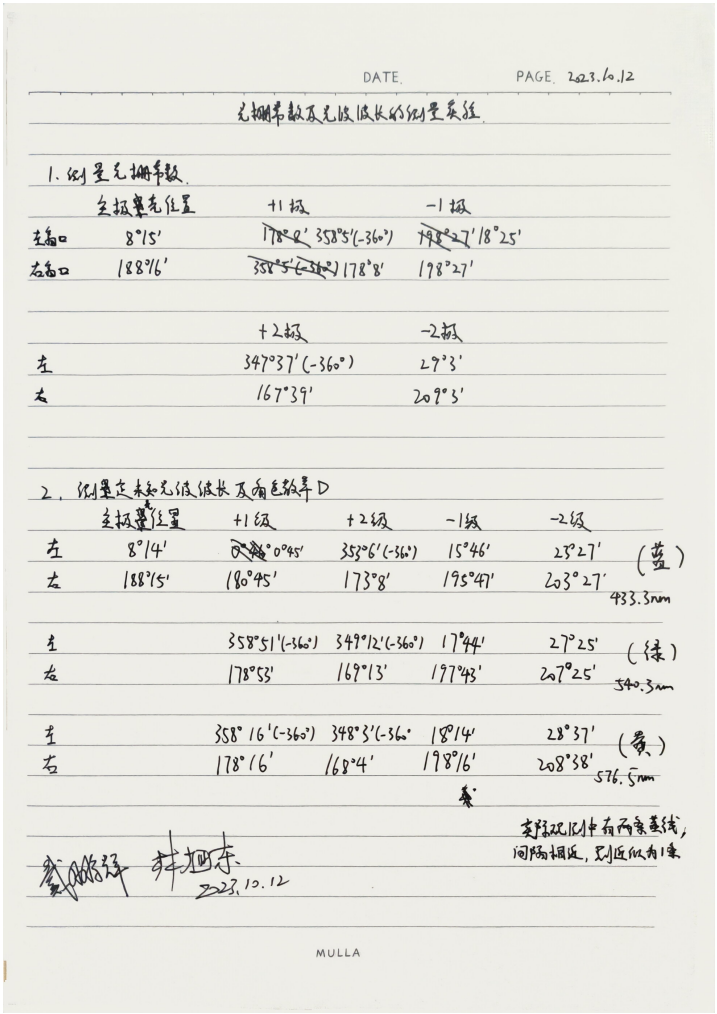 DATE. PAGE. 2023.10.12
光栅常数及光波波长的测量实验.
1. 测量光栅常数.
主极 亮位置 +1极 -1极
左窗口 8°15' 178°8' 358°5'(-360°) 198°27' 18°25'
右窗口 188°16' 358°5'(-360°) 178°8' 198°27'
+2极 -2极
左 347°37'(-360°) 29°3'
右 167°39' 209°3'
2. 测量定未知光波波长及角色散率D
主极亮位置 +1级 +2级 -1级 -2级
左 8°14' 0°45' 353°6'(-360°) 15°46' 23°27' (蓝)
右 188°15' 180°45' 173°8' 195°47' 203°27' 433.3nm
左 358°51'(-360°) 349°12'(-360°) 17°44' 27°25' (绿)
右 178°53' 169°13' 197°43' 207°25' 540.3nm
左 358°16'(-360°) 348°3'(-360° 18°14' 28°37' (黄)
右 178°16' 168°4' 198°16' 208°38' 576.5nm
实际观测中有两条黄线,
间隔相近, 则近似为1条
2023.10.12
MULLA